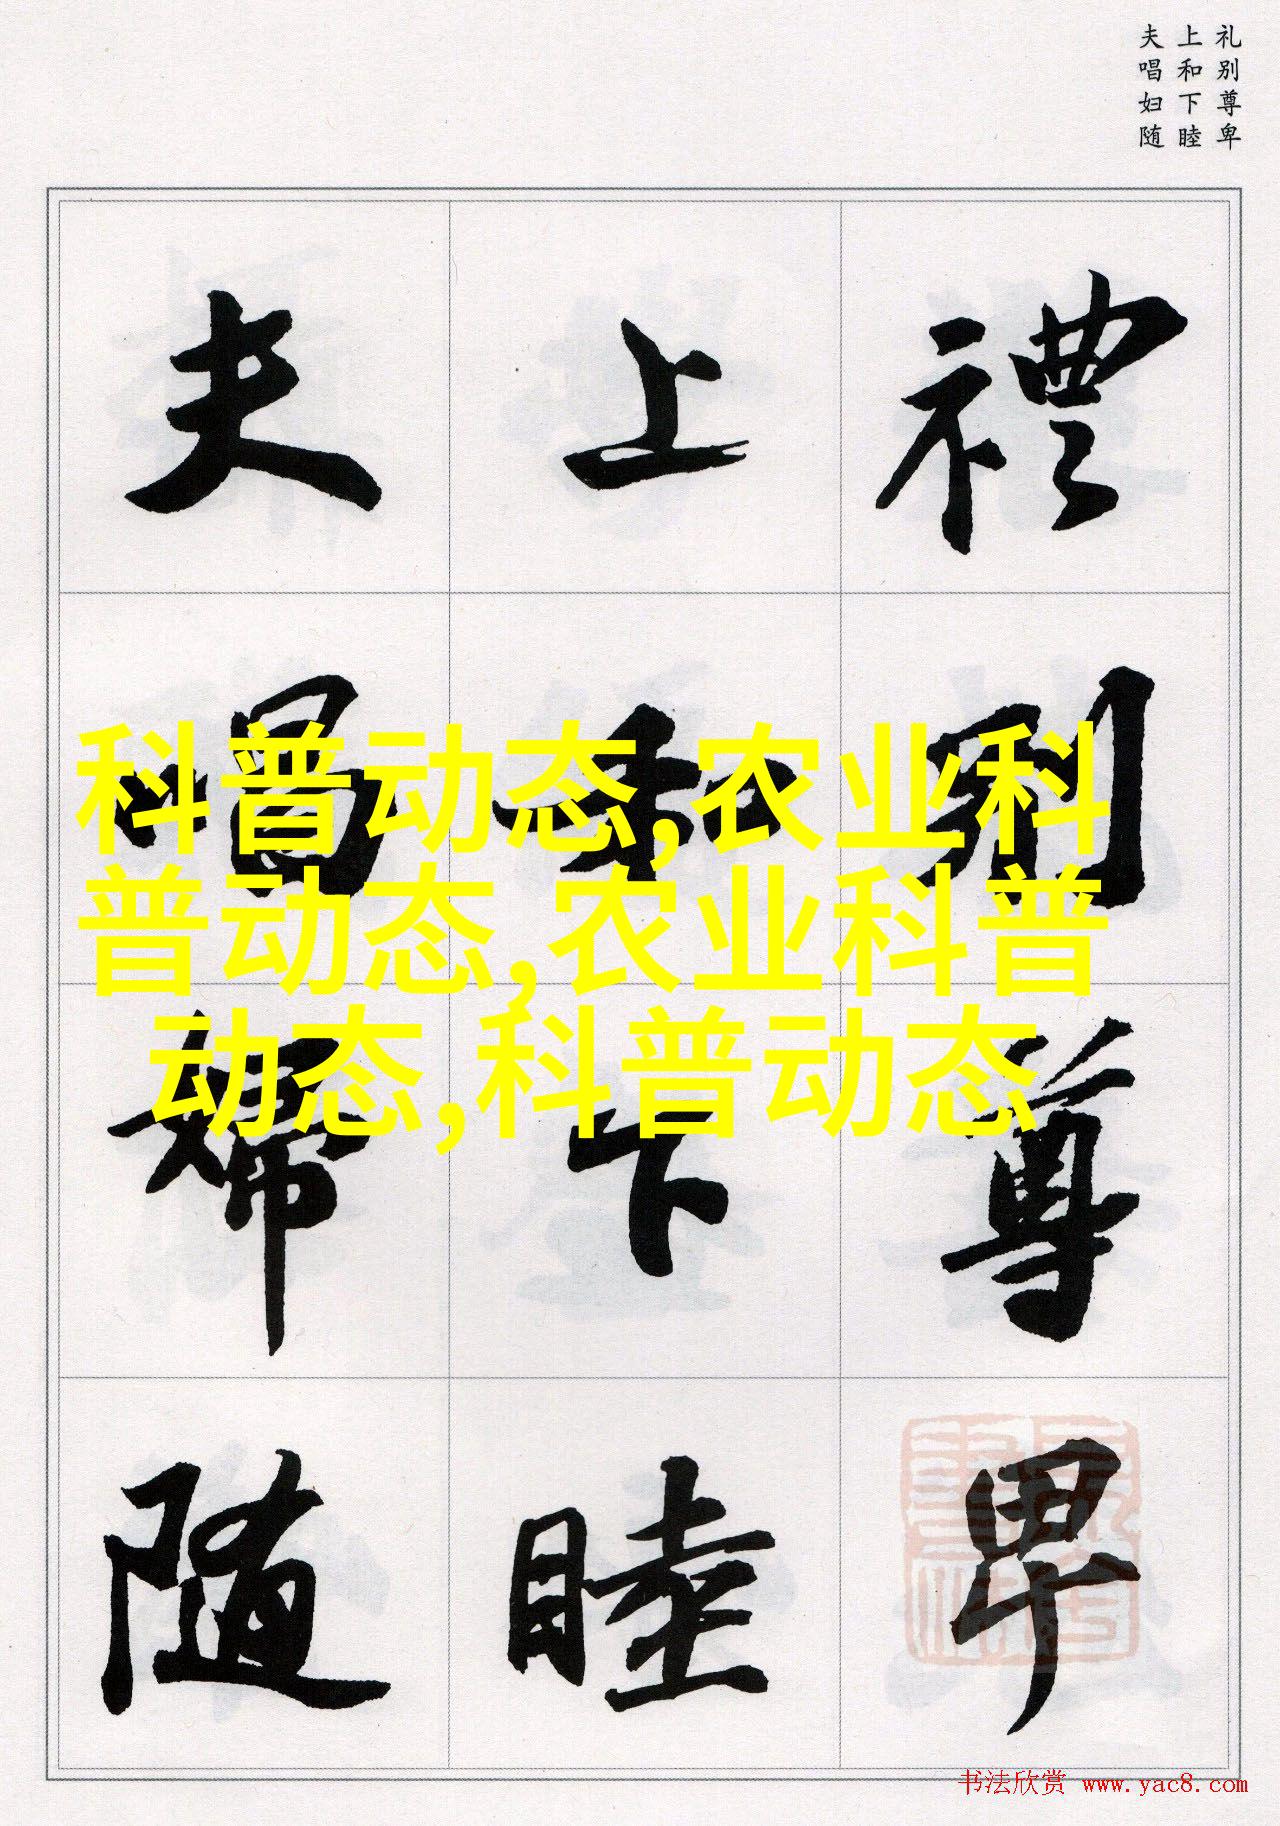 礼别尊卑
上和下睦
夫唱妇随
禮别尊卑
上和下睦
夫唱婦随
科普动态,农业科
普动态,农业科普
动态,科普动态
书法欣赏 www.yac8.com